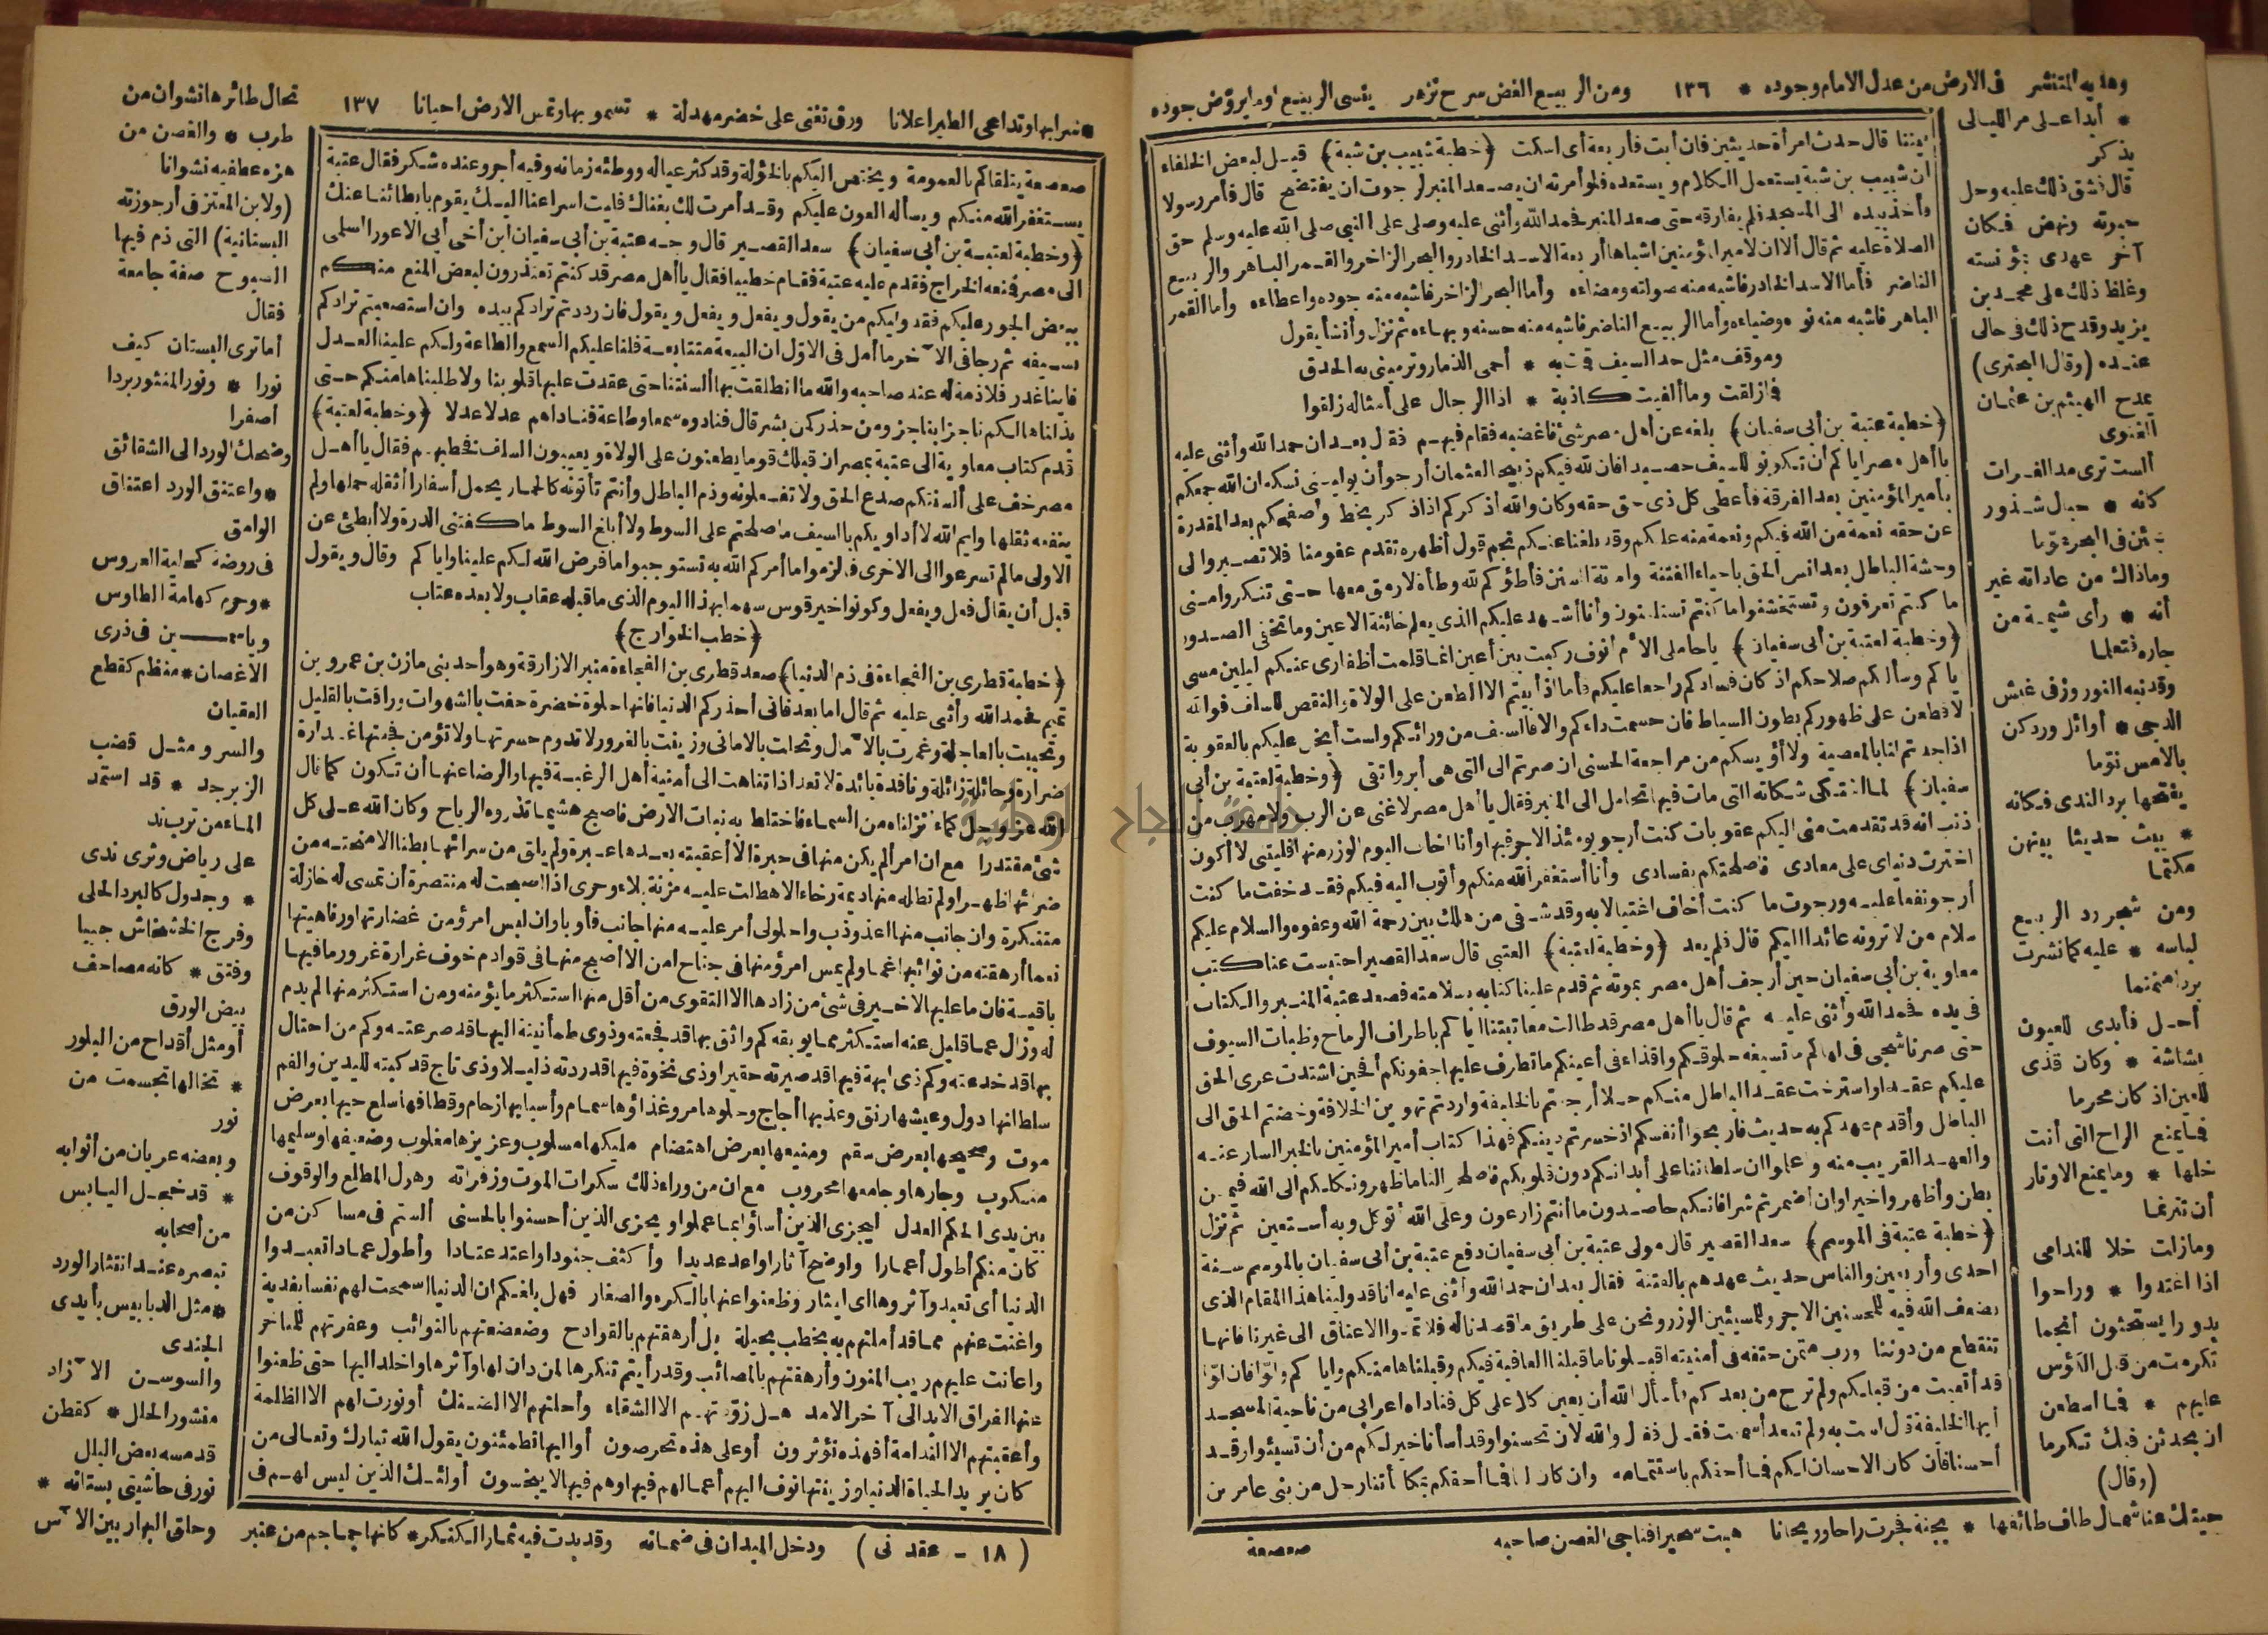 وهديه المنتشر فى الارض من عدل الامام وجوده * ١٣٦ ومن الربيع الغض سرح تزهر ينسى الربيع وما يروّض جوده
* أبدا على مر الليالى
يذكر
قال فشق ذلك عليه وحل
حبوته ونهض فكان
آخر عهدى بمؤنسته
وغلظ ذلك على محمد بن
يزيد وقدح ذلك فى حالى
عنده (وقال البحترى)
يمدح الهيثم بن عثمان
الغنوى
ألست ترى مد الفرات
كأنه * جبال شذور
جئن فى البحر عوما
وماذاك من عاداته غير
أنه * رأى شيمة من
جاره فتعلما
وقد نبه النوروز فى غبش
الدجى * أوائل ورد كن
بالامس نوّما
يفتحها برد الندى فكانه
* يبث حديثا بينهن
مكتما
ومن شجر رد الربيع
لباسه * عليه كما نشرت
بردا منمنما
أحل فأبدى للعيون
بشاشة * وكان قذى
للعين اذ كان محرما
فما يمنع الراح التى أنت
خلها * وما يمنع الاوتار
أن تترنما
ومازلت خلا للندامى
اذا اغتدوا * وراحوا
بدورا يستحثون أنجما
تكرمت من قبل الكؤس
عليهم * فما اسطعن
ان يحدثن فيك تكرما
(وقال)
حيتك عنا شمال طاف طائفها * بجنة فجرت راحا وريحانا هبت سحيرا فناجى الغصن صاحبه
صعصعة
بيتنا قال حدث امرأة حديثين فان أبت فأربعة أى اسكت (خطبة شبيب بن شبة) قيل لبعض الخلفاء
ان شبيب بن شبة يستعمل الكلام ويستعده فلو أمرته ان يصعد المنبر لرجوت ان يفتضح قال فأمر رسولا
وأخذ بيده الى المسجد فلم يفارقه حتى صعد المنبر فحمد الله وأثنى عليه وصلى على النبى صلى الله عليه وسلم حق
الصلاة عليه ثم قال ألا ان لامير المؤمنين أشباها أربعة الاسد الخادر والبحر الزاخر والقمر الباهر والربيع
الناضر فأما الاسد الخادر فاشبه منه صولته ومضاءه وأما البحر الزاخر فاشبه منه جوده واعطاءه وأما القمر
الباهر فاشبه منه نوره وضياءه وأما الربيع الناضر فاشبه منه حسنه وبهاءه ثم نزل وأنشأ يقول
وموقف مثل حد السيف قمت به * أحمى الذمار وترمينى به الحدق
فمازلقت وما ألفيت كاذبة * اذا الرجال على أمثاله زلقوا
(خطبة عتبة بن أبى سفيان) بلغه عن أهل مصر شئ فاغضبه فقام فيهم فقال بعد ان حمد الله وأثنى عليه
يا أهل مصر اياكم أن تكونوا للسيف حصيدا فان لله فيكم ذبيحا لعثمان أرجو أن يولينى نسكه ان الله جمعكم
بأمير المؤمنين بعد الفرقة فأعطى كل ذى حق حقه وكان والله أذكركم اذا ذكر بخطة وأصفحكم بعد المقدرة
عن حقه نعمة من الله فيكم ونعمة منه عليكم وقد بلغنا عنكم نجم قول أظهره تقدم عفو منا فلا تصيروا الى
وحشة الباطل بعد انس الحق باحياء الفتنة واماتة السنن فأطؤكم لله وطأة لارمق معها حتى تنكروا منى
ما كنتم تعرفون وتستخشنوا ما كنتم تستلينون وأنا أشهد عليكم الذى يعلم خائنة الاعين وما تخفى الصدور
(وخطبة لعتبة بن أبى سفيان) يا حاملى الأم أنوف ركبت بين أعين انما قلمت أظفارى عنكم ليلين مسى
اياكم وسألتكم صلاحكم اذ كان فسادكم راجعا عليكم فأما اذ أبيتم الا الطعن على الولاة والتنقص للسلف فوالله
لاقطعن على ظهوركم بطون السياط فان حسمت داءكم والا فالسيف من ورائكم ولست أبخل عليكم بالعقوبة
اذا جدتم لنا بالمعصية ولا أؤيسكم من مراجعة الحسنى ان صرتم الى التى هى أبر واتقى (وخطبة لعتبة بن أبى
سفيان) لما اشتكى شكاته التى مات فيها تحامل الى المنبر فقال يا أهل مصر لا غنى عن الرب ولا مهرب من
ذنب انه قد تقدمت منى اليكم عقوبات كنت أرجو يومئذ الاجر فيها وأنا اخاف اليوم الوزر منها فليتنى لا أكون
اخترت دنياى على معادى فاصلحتكم بفسادى وأنا أستغفر الله منكم وأتوب اليه فيكم فقد خفت ما كنت
أرجو نفعا عليه ورجوت ما كنت أخاف اغتيالا به وقد شقى من هلك بين رحمة الله وعفوه والسلام عليكم
سلام من لا ترونه عائدا اليكم قال فلم يعد (وخطبة لعتبة) العتبى قال سعد القصير احتبست عنا كتب
معاوية بن أبى سفيان حين أرجف أهل مصر بموته ثم قدم علينا كتابه بسلامته فصعد عتبة المنبر والكتاب
فى يده فحمد الله وأثنى عليه ثم قال يا أهل مصر قد طالت معاتبتنا اياكم باطراف الرماح وظبات السيوف
حتى صرنا شجى فى لهاكم ما تسيغه حلوقكم واقذاء فى أعينكم ما تطرف عليها جفونكم أفحين اشتدت عرى الحق
عليكم عقدا واسترخت عقد الباطل منكم حلا أرجفتم بالخليفة واردتم تهوين الخلافة وخضتم الحق الى
الباطل وأقدم عهدكم به حديث فاربحوا أنفسكم اذ خسرتم دينكم فهذا كتاب أمير المؤمنين بالخبر السار عنه
والعهد القريب منه واعلموا ان سلطاننا على أبدانكم دون قلوبكم فاصلحوا لنا ما ظهر ونكلكم الى الله فيما بطن
بطن وأظهروا خيرا وان اضمرتم شرا فانكم حاصدون ما أنتم زارعون وعلى الله توكل وبه أستعين ثم نزل
(خطبة عتبة فى الموسم) سعد القصير قال مولى عتبة بن أبى سفيان دفع عتبة بن أبى سفيان بالموسم سنة
احدى وأربعين والناس حديث عهدهم بالفتنة فقال بعد ان حمد الله وأثنى عليه انا قد ولينا هذا المقام الذى
يضعف الله فيه للمحسنين الاجر وللمسيئين الوزر ونحن على طريق ما قصدنا له فلا تمدوا الاعناق الى غيرنا فانها
تنقطع من دوننا ورب متمن حتفه فى أمنيته اقبلونا ما قبلنا العافية فيكم وقبلناها منكم واياكم ولوّا فان لوّا
قد أتعبت من قبلكم ولم ترح من بعدكم فأسأل الله أن يعين كلا على كل فناداه اعرابى من ناحية المسجد
أيها الخليفة قال لست به ولم تبعد أسمعت فقل فقال والله لان تحسنوا وقد أسأنا خير لكم من أن تسيئوا وقد
أحسنا فان كان الاحسان لكم فما أحقكم باستتمامه وان كان لنا فما أحقكم بمكافأتنا رجل من بنى عامر بن
* سرا بها وتداعى الطير اعلانا ورق تغنى على خضر مهدلة * تسمو بها وتمس الارض احيانا ١٣٧ تخال طائرها نشوان من
صعصعة يتلقاكم بالعمومة ويختص اليكم بالخؤلة وقد كثر عياله ووطئه زمانه وفيه أجر وعنده شكر فقال عتبة
يستغفر الله منكم ويسأله العون عليكم وقد أمرت لك بغناك فليت اسراعنا اليك يقوم بابطائنا عنك
(وخطبة لعتبة بن أبى سفيان) سعد القصير قال وجه عتبة بن أبى سفيان ابن أخى أبى الاعور السلمى
الى مصر فمنعه الخراج فقدم عليه عتبة فقام خطيبا فقال يا أهل مصر قد كنتم تعتذرون لبعض المنع منكم
ببعض الجور عليكم فقد وليكم من يقول ويفعل ويفعل ويقول فان رددتم ترادكم بيده وان استصعبتم ترادكم
بسيفه ثم رجا فى الآخر ما أمل فى الاوّل ان البيعة متتابعة فلنا عليكم السمع والطاعة ولكم علينا العدل
فأينا غدر فلا ذمة له عند صاحبه والله ما انطلقت بها ألسنتنا حتى عقدت عليها قلوبنا ولا طلبناها منكم حتى
بذلناها لكم ناجزا بناجز ومن حذر كمن بشر قال فنادوه سمعا وطاعة فناداهم عدلا عدلا (وخطبة لعتبة)
قدم كتاب معاوية الى عتبة بمصر ان قبلك قوما يطعنون على الولاة ويعيبون السلف فخطبهم فقال يا أهل
مصر خف على ألسنتكم مدح الحق ولا تفعلونه وذم الباطل وأنتم تأتونه كالحمار يحمل أسفارا أثقله حملها ولم
ينفعه ثقلها وايم الله لا أداويكم بالسيف ما صلحتم على السوط ولا أبلغ السوط ما كفتنى الدرة ولا أبطئ عن
الاولى ما لم تسرعوا الى الاخرى فالزموا ما أمركم الله به تستوجبوا ما فرض الله لكم علينا واياكم وقال ويقول
قبل أن يقال فعل ويفعل وكونوا خير قوس سهما بهذا اليوم الذى ما قبله عقاب ولا بعده عتاب
(خطب الخوارج)
(خطبة قطرى بن الفجاءة فى ذم الدنيا) صعد قطرى بن الفجاءة منبر الازارقة وهو أحد بنى مازن بن عمرو بن
تميم فحمد الله وأثنى عليه ثم قال اما بعد فانى أحذركم الدنيا فانها حلوة خضرة حفت بالشهوات وراقت بالقليل
وتحببت بالعاجلة وغمرت بالآمال وتحلت بالامانى وزينت بالغرور لا تدوم حسرتها ولا تؤمن فجعتها غدارة
ضرارة وحائلة زائلة ونافدة بائدة لا تعدو اذا تناهت الى أمنية أهل الرغبة فيها والرضا عنها أن تكون كما قال
الله عز وجل كماء أنزلناه من السماء فاختلط به نبات الارض فاصبح هشيما تذروه الرياح وكان الله على كل
شئ مقتدرا مع ان امرأ لم يكن منها فى حبرة الا أعقبته بعدها عبرة ولم يلق من سرائها بطنا الا منحته من
ضرائها ظهرا ولم تطله منها ديمة رخاء الا هطلت عليه مزنة بلاء وحرى اذا اصبحت له منتصرة أن تمسى له خاذلة
متنكرة وان جانب منها اعذوذب واحلولى أمر عليه منها جانب فأوبا وان لبس امرؤ من غضارتها ورفاهيتها
نعما أرهقته من نوائبها غما ولم يمس امرؤ منها فى جناح امن الا أصبح منها فى قوادم خوف غرارة غرور ما فيها
باقية فان ما عليها الاخير فى شئ من زادها الا التقوى من أقل منها استكثر ما يؤمنه ومن استكثر منها لم يدم
له وزال عما قليل عنه استكثر مما يوبقه كم واثق بها قد فجعته وذوى طمأنينة اليها قد صرعته وكم من احتال
بها قد خدعته وكم ذى ابهة فيها قد صيرته حقيرا وذى نخوة فيها قد ردته ذليلا وذى تاج قد كبته لليدين والفم
سلطانها دول وعيشها رنق وعذبها أجاج وحلوها مر وغذاؤها سمام وأسبابها زحام وقطافها سلع حيها بعرض
موت وصحيحها بعرض سقم ومنيعها بعرض اهتضام مليكها مسلوب وعزيزها مغلوب وضعيفها وسليمها
منكوب وجارها وجامعها محروب مع ان من وراء ذلك سكرات الموت وزفراته وهول المطلع والوقوف
بين يدى الحكم العدل ليجزى الذين أساؤا بما عملوا ويجزى الذين أحسنوا بالحسنى ألستم فى مساكن من
كان منكم أطول أعمارا واوضح آثارا واعد عديدا وأكثف جنودا واعتد عتادا وأطول عمادا تعبدوا
الدنيا أى تعبد وآثروها اى ايثار وظعنوا عنها بالكره والصغار فهل بلغكم ان الدنيا اسمحت لهم نفسا بفدية
واغنت عنهم مما قد أملتهم به بخطب بحيلة بل أرهقتهم بالقوادح وضعضعتهم بالنوائب وعفرتهم للمناخر
واعانت عليهم ريب المنون وأرهقتهم بالمصائب وقد رأيتم تنكرها لمن دان لها وآثرها واخلد اليها حتى ظعنوا
عنها لفراق الابد الى آخر الامد هل زوّدتهم الا الشقاء وأحلتهم الا الضنك أو نورت لهم الا الظلمة
وأعقبتهم الا الندامة أفهذه تؤثرون أو على هذه تحرصون أو اليها تطمئنون يقول الله تبارك وتعالى من
كان يريد الحياة الدنيا وزينتها نوف اليهم أعمالهم فيها وهم فيها لا يبخسون أولئك الذين ليس لهم فى
طرب * والغصن من
هزه عطفيه نشوانا
(ولابن المعتز فى أرجوزته
البستانية) التى ذم فيها
الصبوح صفة جامعة
فقال
أما ترى البستان كيف
نورا * ونور المنثور بردا
أصفرا
وضحك الورد الى الشقائق
* واعتنق الورد اعتناق
الوامق
فى روضة كحلية العروس
* وحرم كهامة الطاوس
وياسمين فى ذرى
الاغصان * منظم كقطع
العقيان
والسرو مثل قضب
الزبرجد * قد استمد
الماء من ترب ند
على رياض وثرى ندى
* وجدول كالبرد الحلى
وفرج الخشخاش جيبا
وفتق * كانه مصاحف
بيض الورق
أو مثل أقداح من البلور
* تخالها تجسمت من
نور
وبعضه عريان من أثوابه
* قد خجل اليابس
من أصحابه
تبصره عند انتثار الورد
* مثل الدبابيس بأيدى
الجندى
والسوسن الآزاد
منشور الحلل * كقطن
قد مسه بعض البلل
نور فى حاشيتى بستانه *
(١٨ - عقد نى) ودخل الميدان فى ضمانه وقد بدت فيه ثمار الكنكر * كانها جماجم من عنبر وحلق البهار بين الآس